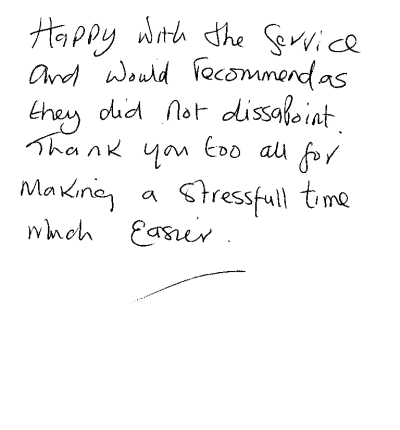 Happy with the Service
and would recommend as
they did not dissapoint.
Thank you too all for
making a stressfull time
much easier.